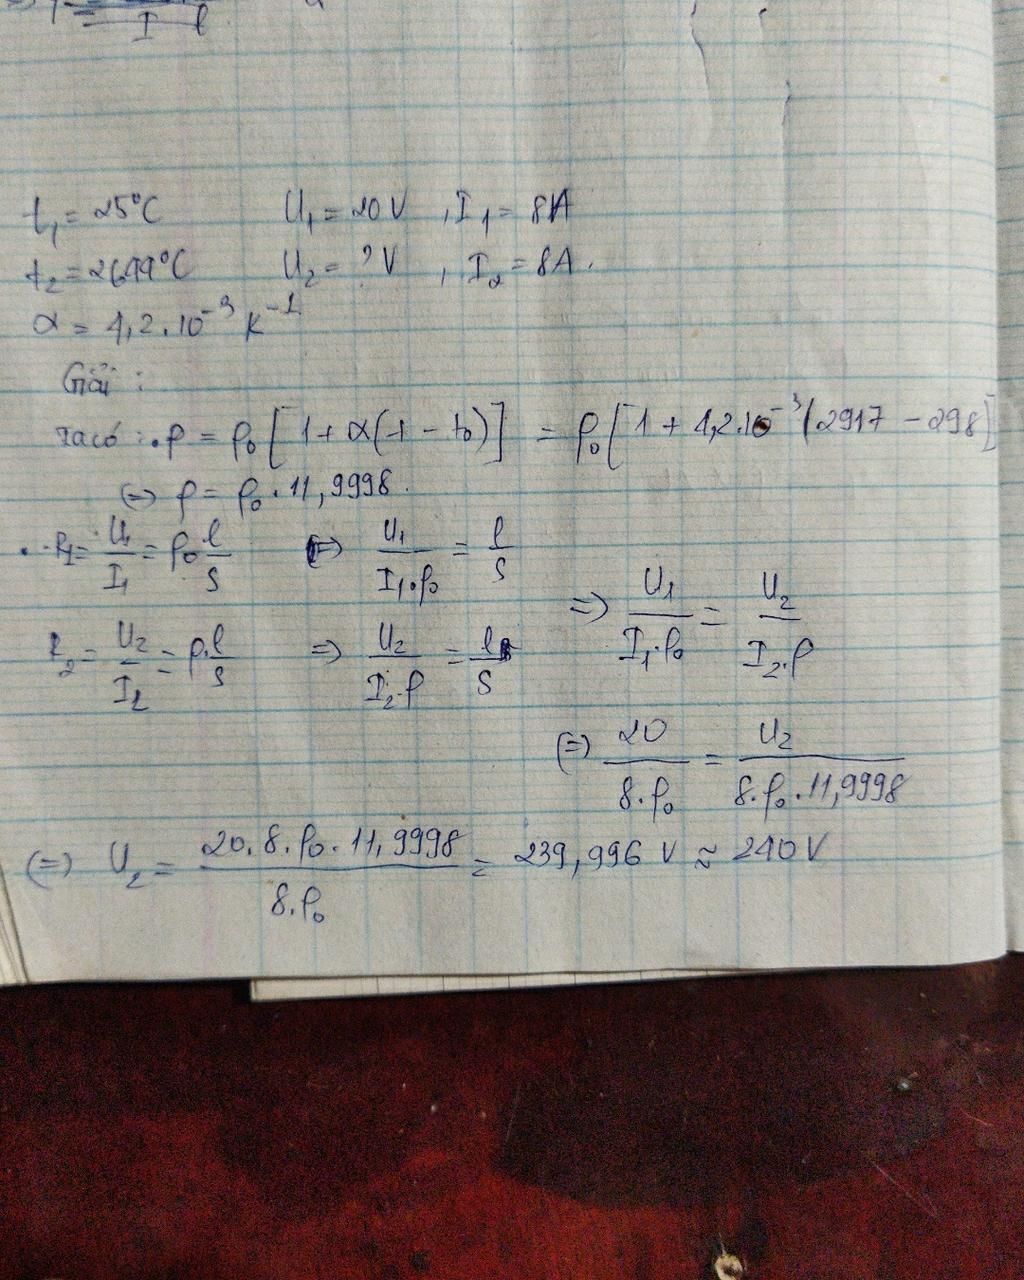 I l
t₁ = 25°C U₁ = 20 V , I₁ = 8A
t₂ = 2644°C U₂ = ? V , I₂ = 8A .
α = 4,2.10⁻³ K⁻¹
Giải :
Ta có : . ρ = ρ₀ [ 1 + α(t - t₀)] = ρ₀ [ 1 + 4,2.10⁻³ (2917 - 298]
(=) ρ = ρ₀ . 11,9998.
. R₁ = U₁/I₁ = ρ₀ l/S (=) U₁/(I₁.ρ₀) = l/S
R₂ = U₂/I₂ = ρ.l/S => U₂/(I₂.ρ) = l/S
=> U₁/(I₁.ρ₀) = U₂/(I₂.ρ)
(=) 20/(8.ρ₀) = U₂/(8.ρ₀.11,9998)
(=) U₂ = (20.8.ρ₀.11,9998)/(8.ρ₀) = 239,996 V ≈ 240 V